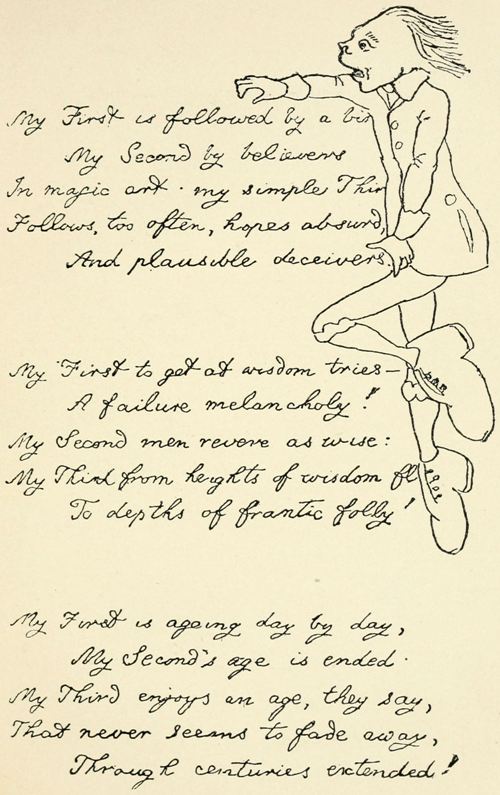 My First is followed by a bir
My Second by believers
In magic art · my simple Thir
Follows, too often, hopes absurd,
And plausible deceivers.
My First to get at wisdom tries—
A failure melancholy!
My Second men revere as wise:
My Third from heights of wisdom fl
To depths of frantic folly!
My First is ageing day by day,
My Second's age is ended·
My Third enjoys an age, they say,
That never seems to fade away,
Through centuries extended!